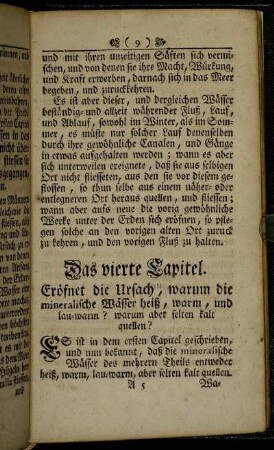 ( 9 )
und mit ihren unzeitigen Säften sich vermi-
schen, und von denen sie ihre Macht, Würkung,
und Kraft erwerben, darnach sich in das Meer
begeben, und zuruckkehren.
Es ist aber dieser, und dergleichen Wässer
beständig- und allzeit währender Fluß, Lauf,
und Ablauf, sowohl im Winter, als im Som-
mer, es müste nur solcher Lauf denenselben
durch ihre gewöhnliche Canalen, und Gänge
in etwas aufgehalten werden; wann es aber
sich unterweilen ereignet, daß sie aus selbigen
Ort nicht fliesseten, aus den sie vor diesem ge-
flossen, so thun selbe aus einem näher- oder
entlegneren Ort heraus quellen, und fliessen;
wann aber aufs neue die vorig gewöhnliche
Werke unter der Erden sich eröfnen, so pfle-
gen solche an den vorigen alten Ort zuruck
zu kehren, und den vorigen Fluß zu halten.
Das vierte Capitel.
Eröfnet die Ursach, warum die
mineralische Wässer heiß, warm, und
lau-warm? warum aber selten kalt
quellen?
ES ist in dem ersten Capitel geschrieben,
und nun bekannt, daß die mineralische
Wässer des mehrern Theils entweder
heiß, warm, lau-warm, aber selten kalt quellen.
A 5 Wa-